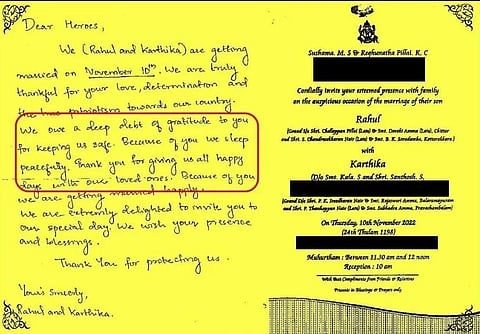 Dear Heroes,
We (Rahul and Karthika) are getting
married on November 10th. We are truly
thankful for your love, determination and
the true patriotism towards our country.
We owe a deep debt of gratitude to you
for keeping us safe. Because of you we sleep
peacefully. Thank you for giving us all happy
days with our loved ones. Because of you
we are getting married happily.
We are extremely delighted to invite you to
our special day. We wish your presence
and blessings.
Thank You for protecting us.
Yours Sincerely,
Rahul and Karthika.
Sushama. M. S & Reghunatha Pillai. K. C
Cordially invite your esteemed presence with family
on the auspicious occasion of the marriage of their son
Rahul
(Grand S/o Shri. Chellappan Pillai (Late) & Smt. Devaki Amma (Late), Chittar
and Shri. E. Chandrasekharan Nair (Late) & Smt. B. K. Saradamba, Kottarakkara)
with
Karthika
(D/o Smt. Kala. S and Shri. Santhosh. S,
(Grand D/o Shri. P. K. Sreedharan Nair & Smt. Rajeswari Amma, Balaramapuram
and Shri. P. Thankappan Nair (Late) & Smt. Subhadra Amma, Pravachambalam)
On Thursday, 10th November 2022
(24th Thulam 1198)
Muhurtham : Between 11.30 am and 12 noon
Reception : 10 am
With Best Compliments from Friends & Relatives
Presents in Blessings & Prayers only